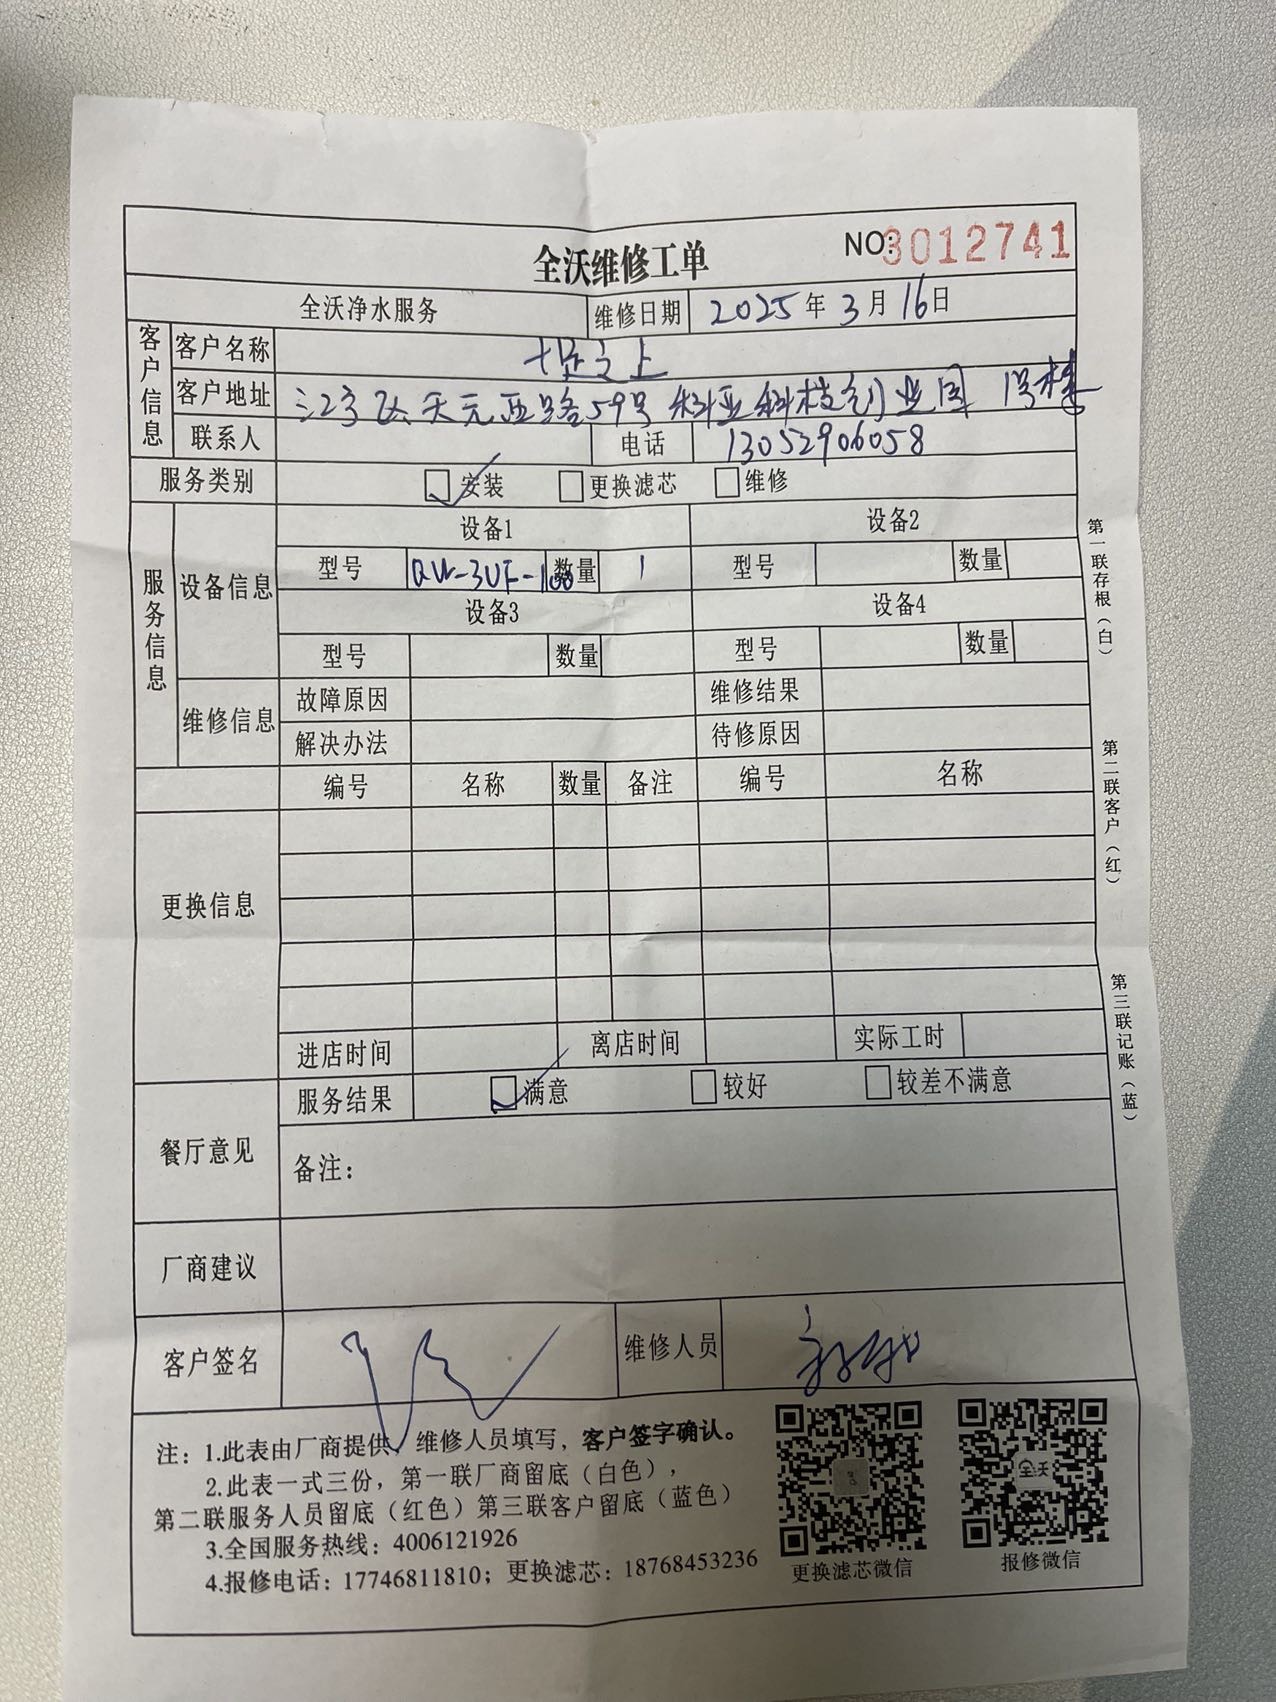 全沃维修工单 NO:3012741
全沃净水服务 维修日期 2025年3月16日
客户信息
客户名称 十足之上
客户地址 江宁区天元西路59号 科亚科技创业园 1号楼
联系人 电话 13052906058
服务类别 安装 更换滤芯 维修
服务信息
设备信息
设备1 设备2
型号 QW-3UF-100 数量 1 型号 数量
设备3 设备4
型号 数量 型号 数量
维修信息
故障原因 维修结果
解决办法 待修原因
编号 名称 数量 备注 编号 名称
更换信息
进店时间 离店时间 实际工时
餐厅意见
服务结果 满意 较好 较差不满意
备注:
厂商建议
客户签名 维修人员
注:1.此表由厂商提供,维修人员填写,客户签字确认。
2.此表一式三份,第一联厂商留底(白色),
第二联服务人员留底(红色)第三联客户留底(蓝色)
3.全国服务热线:4006121926
4.报修电话:17746811810;更换滤芯:18768453236
更换滤芯微信 报修微信
第一联存根(白)
第二联客户(红)
第三联记账(蓝)